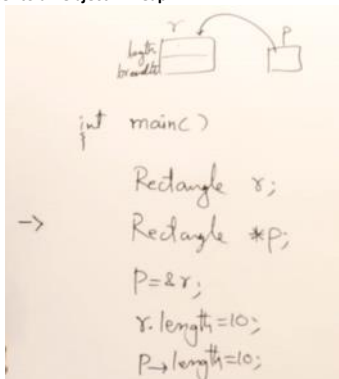 r p
length
breadth
int main()
{
Rectangle r;
→ Rectangle *p;
p=&r;
r.length=10;
p→length=10;